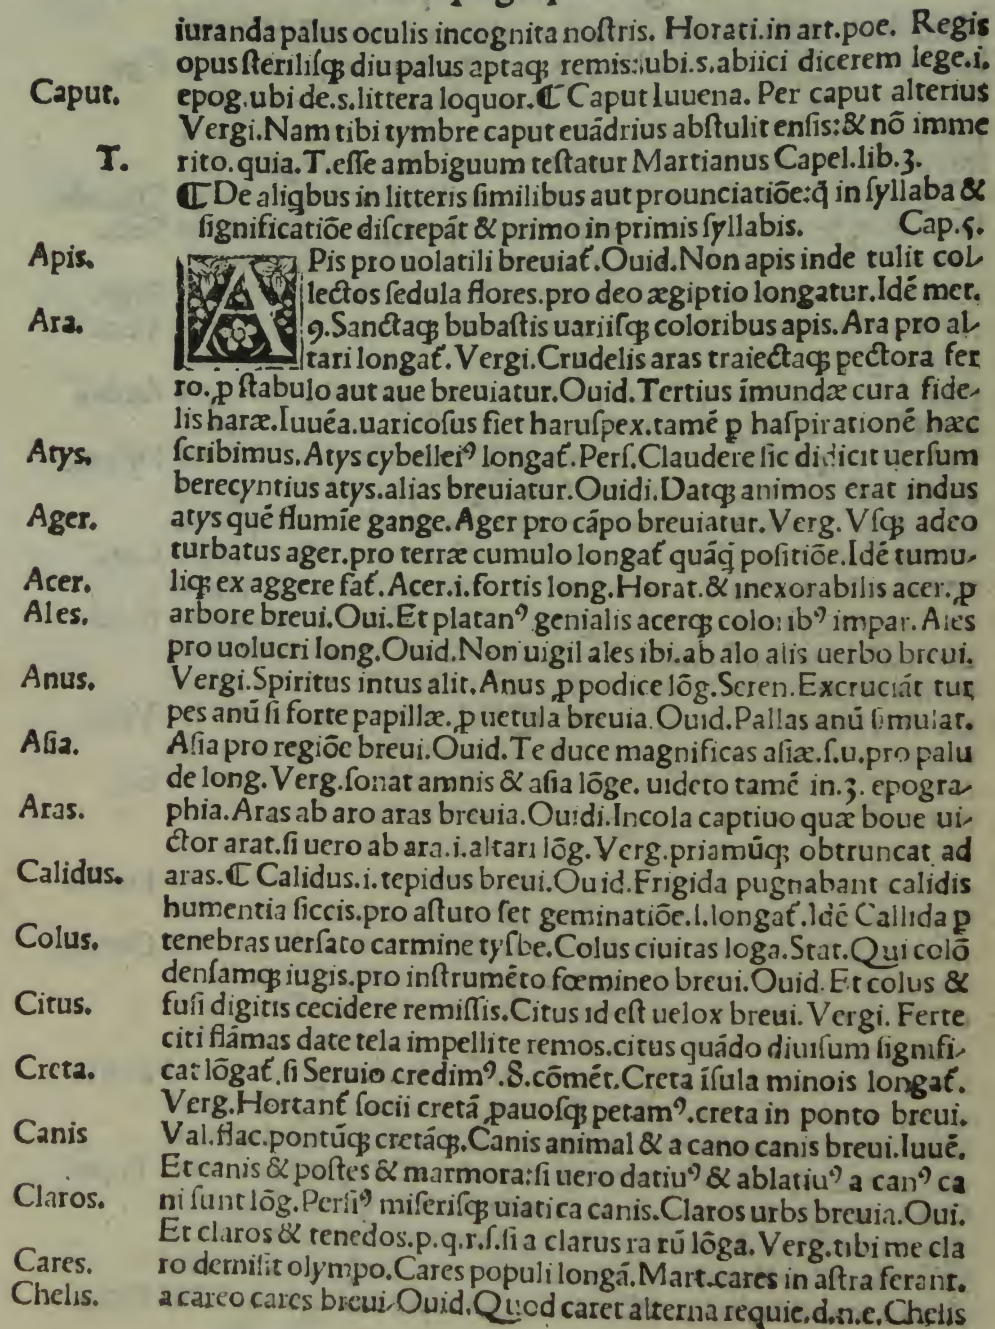 iuranda palus oculis incognita noſtris. Horati.in art.poe. Regis
opus ſteriliſqꝫ diu palus aptaqꝫ remis:ubi.s.abiici dicerem lege.i.
Caput. epog.ubi de.s.littera loquor.⸿ Caput Iuuena. Per caput alterius
Vergi.Nam tibi tymbre caput euādrius abſtulit enſis:& nō imme
T. rito.quia.T.eſſe ambiguum teſtatur Martianus Capel.lib.3.
⸿ De aliqbus in litteris ſimilibus aut prounciatiōe:q̄ in ſyllaba &
ſignificatiōe diſcrepāt & primo in primis ſyllabis. Cap.5.
Apis. APis pro uolatili breuiat̄.Ouid.Non apis inde tulit col-
lectos ſedula flores.pro deo ægiptio longatur.Idē met.
Ara. 9.Sanctaqꝫ bubaſtis uariiſqꝫ coloribus apis.Ara pro al-
tari longat̄.Vergi.Crudelis aras traiectaqꝫ pectora fer
ro.ꝓ ſtabulo aut aue breuiatur.Ouid.Tertius īmundæ cura fide-
lis haræ.Iuuēa.uaricoſus fiet haruſpex.tamē ꝑ haſpirationē hæc
Atys. ſcribimus.Atys cybelleiꝰ longat̄.Perſ.Claudere ſic didicit uerſum
berecyntius atys.alias breuiatur.Ouidi.Datqꝫ animos erat indus
Ager. atys quē flumīe gange.Ager pro cāpo breuiatur.Verg.Vſqꝫ adeo
turbatus ager.pro terræ cumulo longat̄ quāq̄ poſitiōe.Idē tumu-
Acer. liqꝫ ex aggere fat̄.Acer.i.fortis long.Horat.& inexorabilis acer.ꝓ
Ales. arbore breui.Oui.Et platanꝰ genialis acerqꝫ coloribꝰ impar.Ales
pro uolucri long.Ouid.Non uigil ales ibi.ab alo alis uerbo breui.
Anus. Vergi.Spiritus intus alit.Anus ꝓ podice lōg.Seren.Excruciāt tur
pes anū ſi forte papillæ.ꝓ uetula breuia.Ouid.Pallas anū ſimulat.
Aſia. Aſia pro regiōe breui.Ouid.Te duce magnificas aſiæ.ſ.u.pro palu
de long.Verg.ſonat amnis & aſia lōge. uideto tamē in.3. epogra-
Aras. phia.Aras ab aro aras breuia.Ouidi.Incola captiuo quæ boue ui-
ctor arat.ſi uero ab ara.i.altari lōg.Verg.priamūqꝫ obtruncat ad
Calidus. aras.⸿ Calidus.i.tepidus breui.Ouid.Frigida pugnabant calidis
humentia ſiccis.pro aſtuto ſet geminatiōe.l.longat̄.Idē Callida ꝑ
Colus. tenebras uerſato carmine tyſbe.Colus ciuitas loga.Stat.Qui colō
denſamqꝫ iugis.pro inſtrumēto fœmineo breui.Ouid.Et colus &
Citus. fuſi digitis cecidere remiſſis.Citus id eſt uelox breui.Vergi. Ferte
citi flāmas date tela impellite remos.citus quādo diuiſum ſignifi-
Creta. cat lōgat̄.ſi Seruio credimꝰ.8.cōmēt.Creta īſula minois longat̄.
Verg.Hortant̄ ſocii cretā ꝓauoſqꝫ petamꝰ.creta in ponto breui.
Canis Val.flac.pontūqꝫ cretāqꝫ.Canis animal & a cano canis breui.Iuuē.
Et canis & poſtes & marmora:ſi uero datiuꝰ & ablatiuꝰ a canꝰ ca
Claros. ni ſunt lōg.Perſiꝰ miſeriſqꝫ uiatica canis.Claros urbs breuia.Oui.
Et claros & tenedos.p.q.r.ſ.ſi a clarus ra rū lōga.Verg.tibi me cla
Cares. ro demiſit olympo.Cares populi longā.Mart.cares in aſtra ferant.
Chelis. a careo cares breui.Ouid.Quod caret alterna requie.d.n.e.Chelis